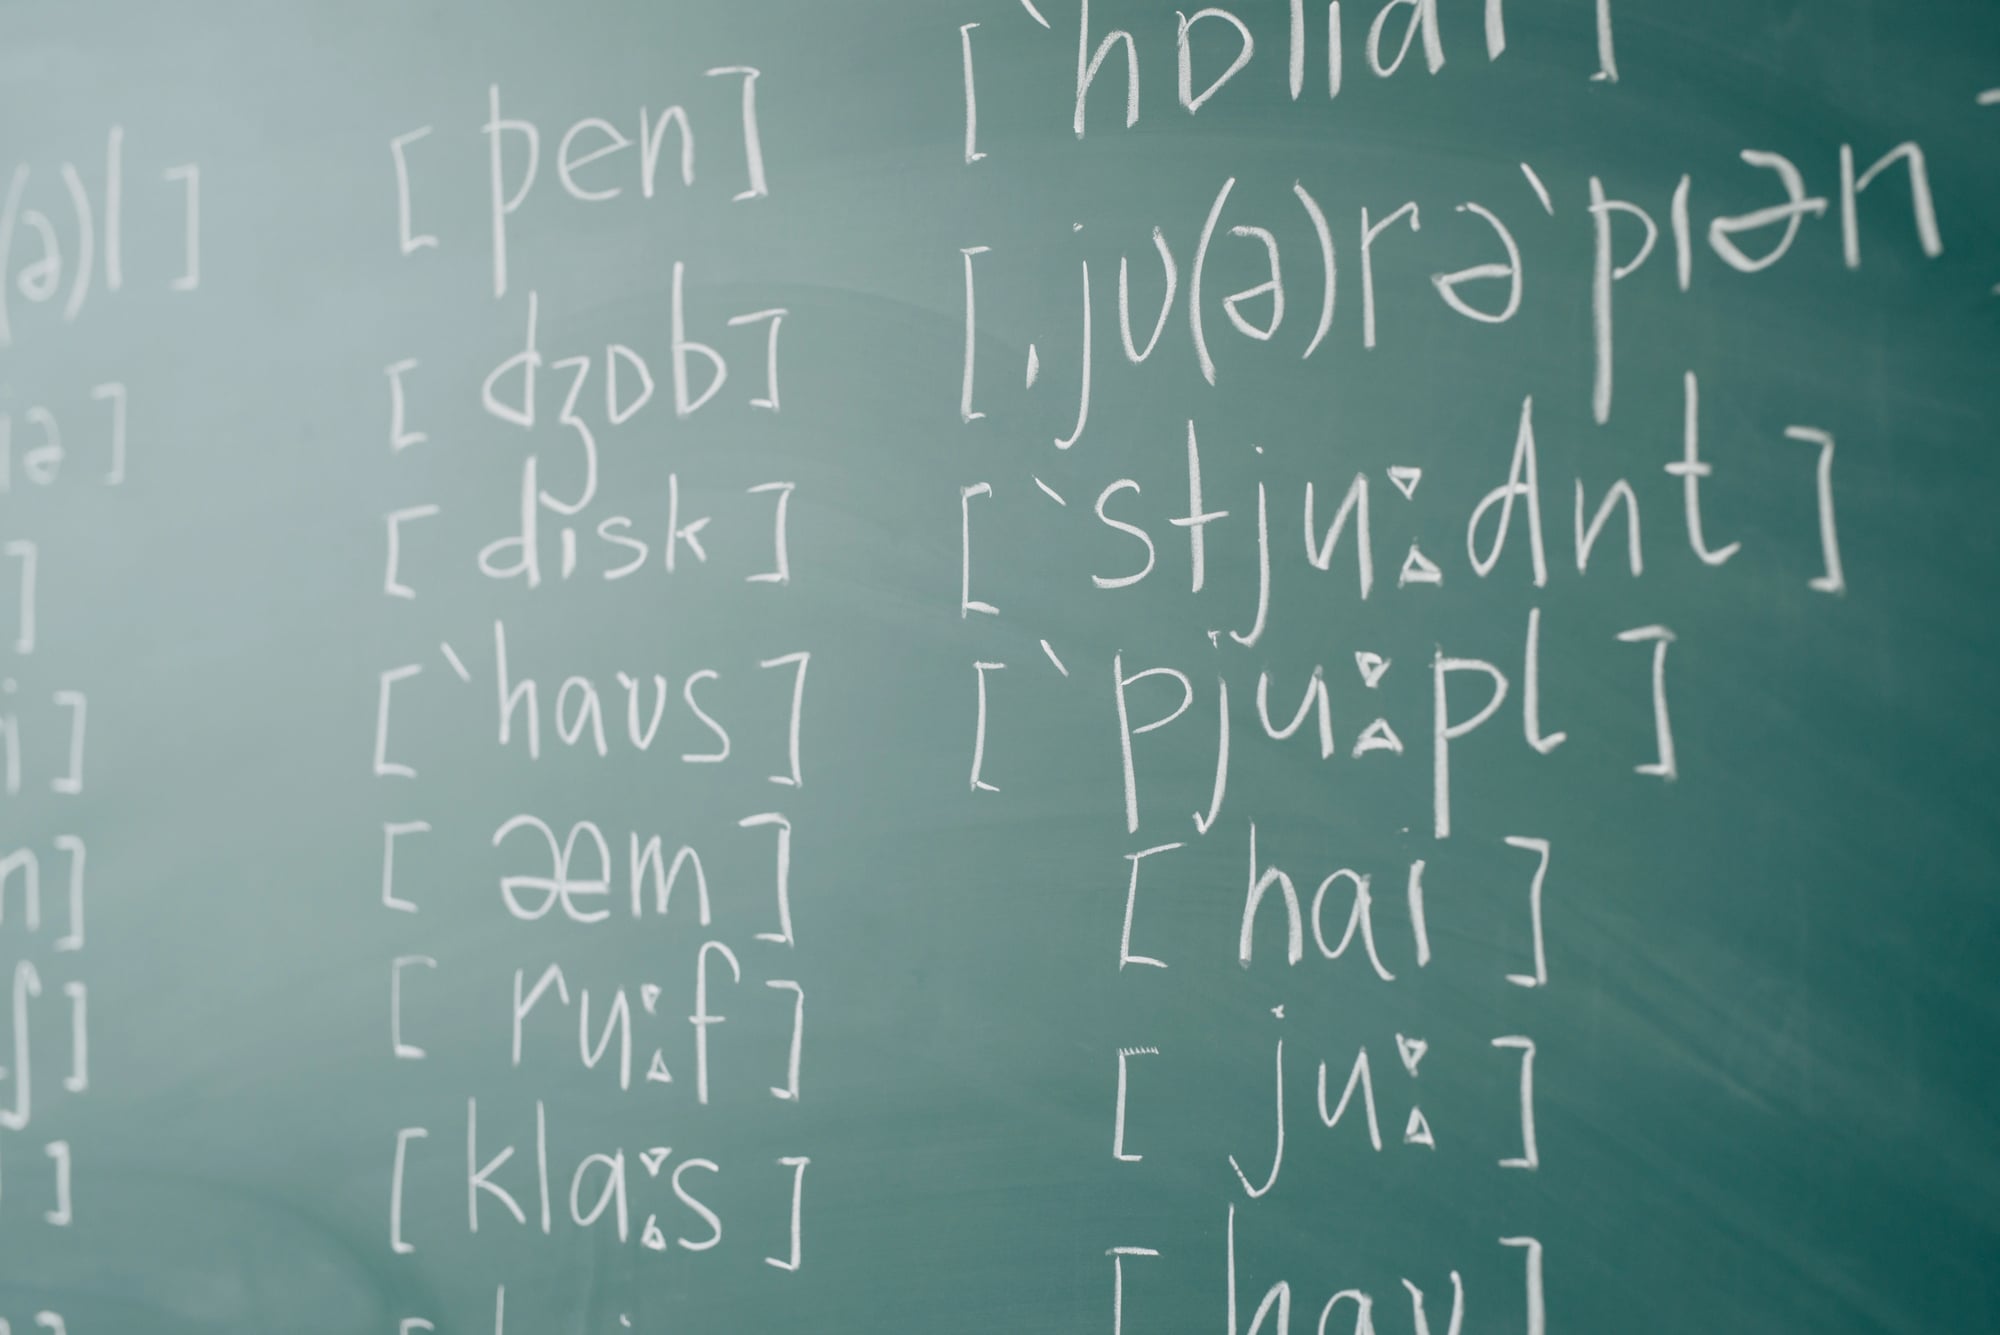 (ə)l]
iə]
]
i]
n]
ʃ]
]
[pen]
[dʒɒb]
[dısk]
[ˋhaʊs]
[æm]
[ru:f]
[kla:s]
[ˋhɒlıdı]
[ˌjʊ(ə)rəˋpıən
[ˋstju:dnt]
[ˋpju:pl]
[haı]
[ju:]
[hav]